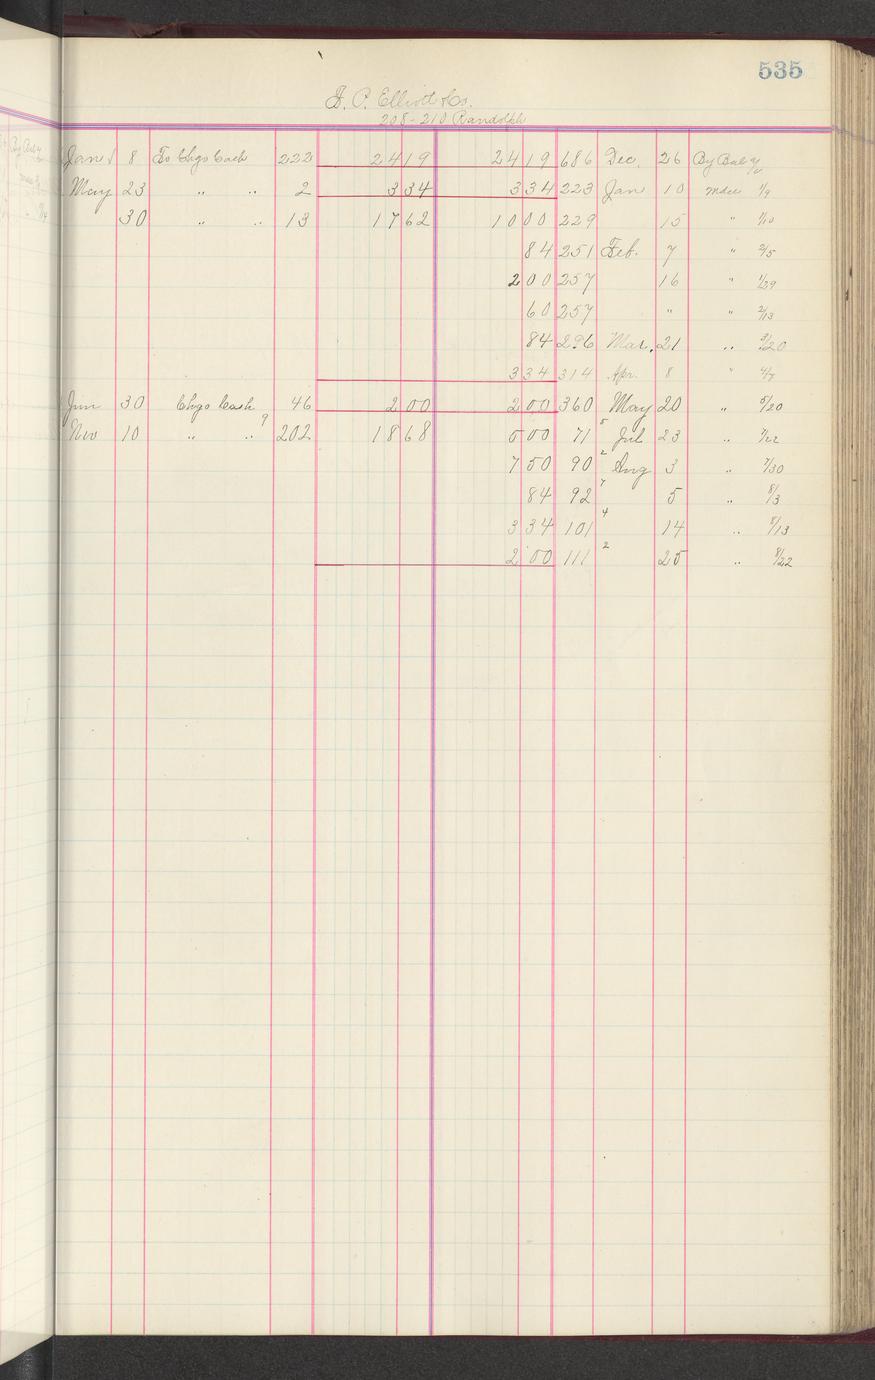 535
F. P. Elliott & Co.
208-210 Randolph
Jany 8 To Chgo Cash 222 24 19 24 19 686 Dec. 26 By Bal
May 23 " " 2 3 34 3 34 223 Jan 10 Mdse 1/9
30 " " 13 17 62 10 00 229 15 " 1/10
84 251 Feb. 7 " 2/5
2 00 257 16 " 1/29
60 257 " " 2/13
84 296 Mar. 21 " 3/20
3 34 314 Apr. 8 " 4/7
Jun 30 Chgo Cash 46 2 00 2 00 360 May 20 " 5/20
Nov 10 " " 9 202 18 68 5 00 71 5 Jul 23 " 7/22
7 50 90 2 Aug 3 " 7/30
84 92 7 5 " 8/3
3 34 101 4 14 " 8/13
2 00 111 2 25 " 8/22